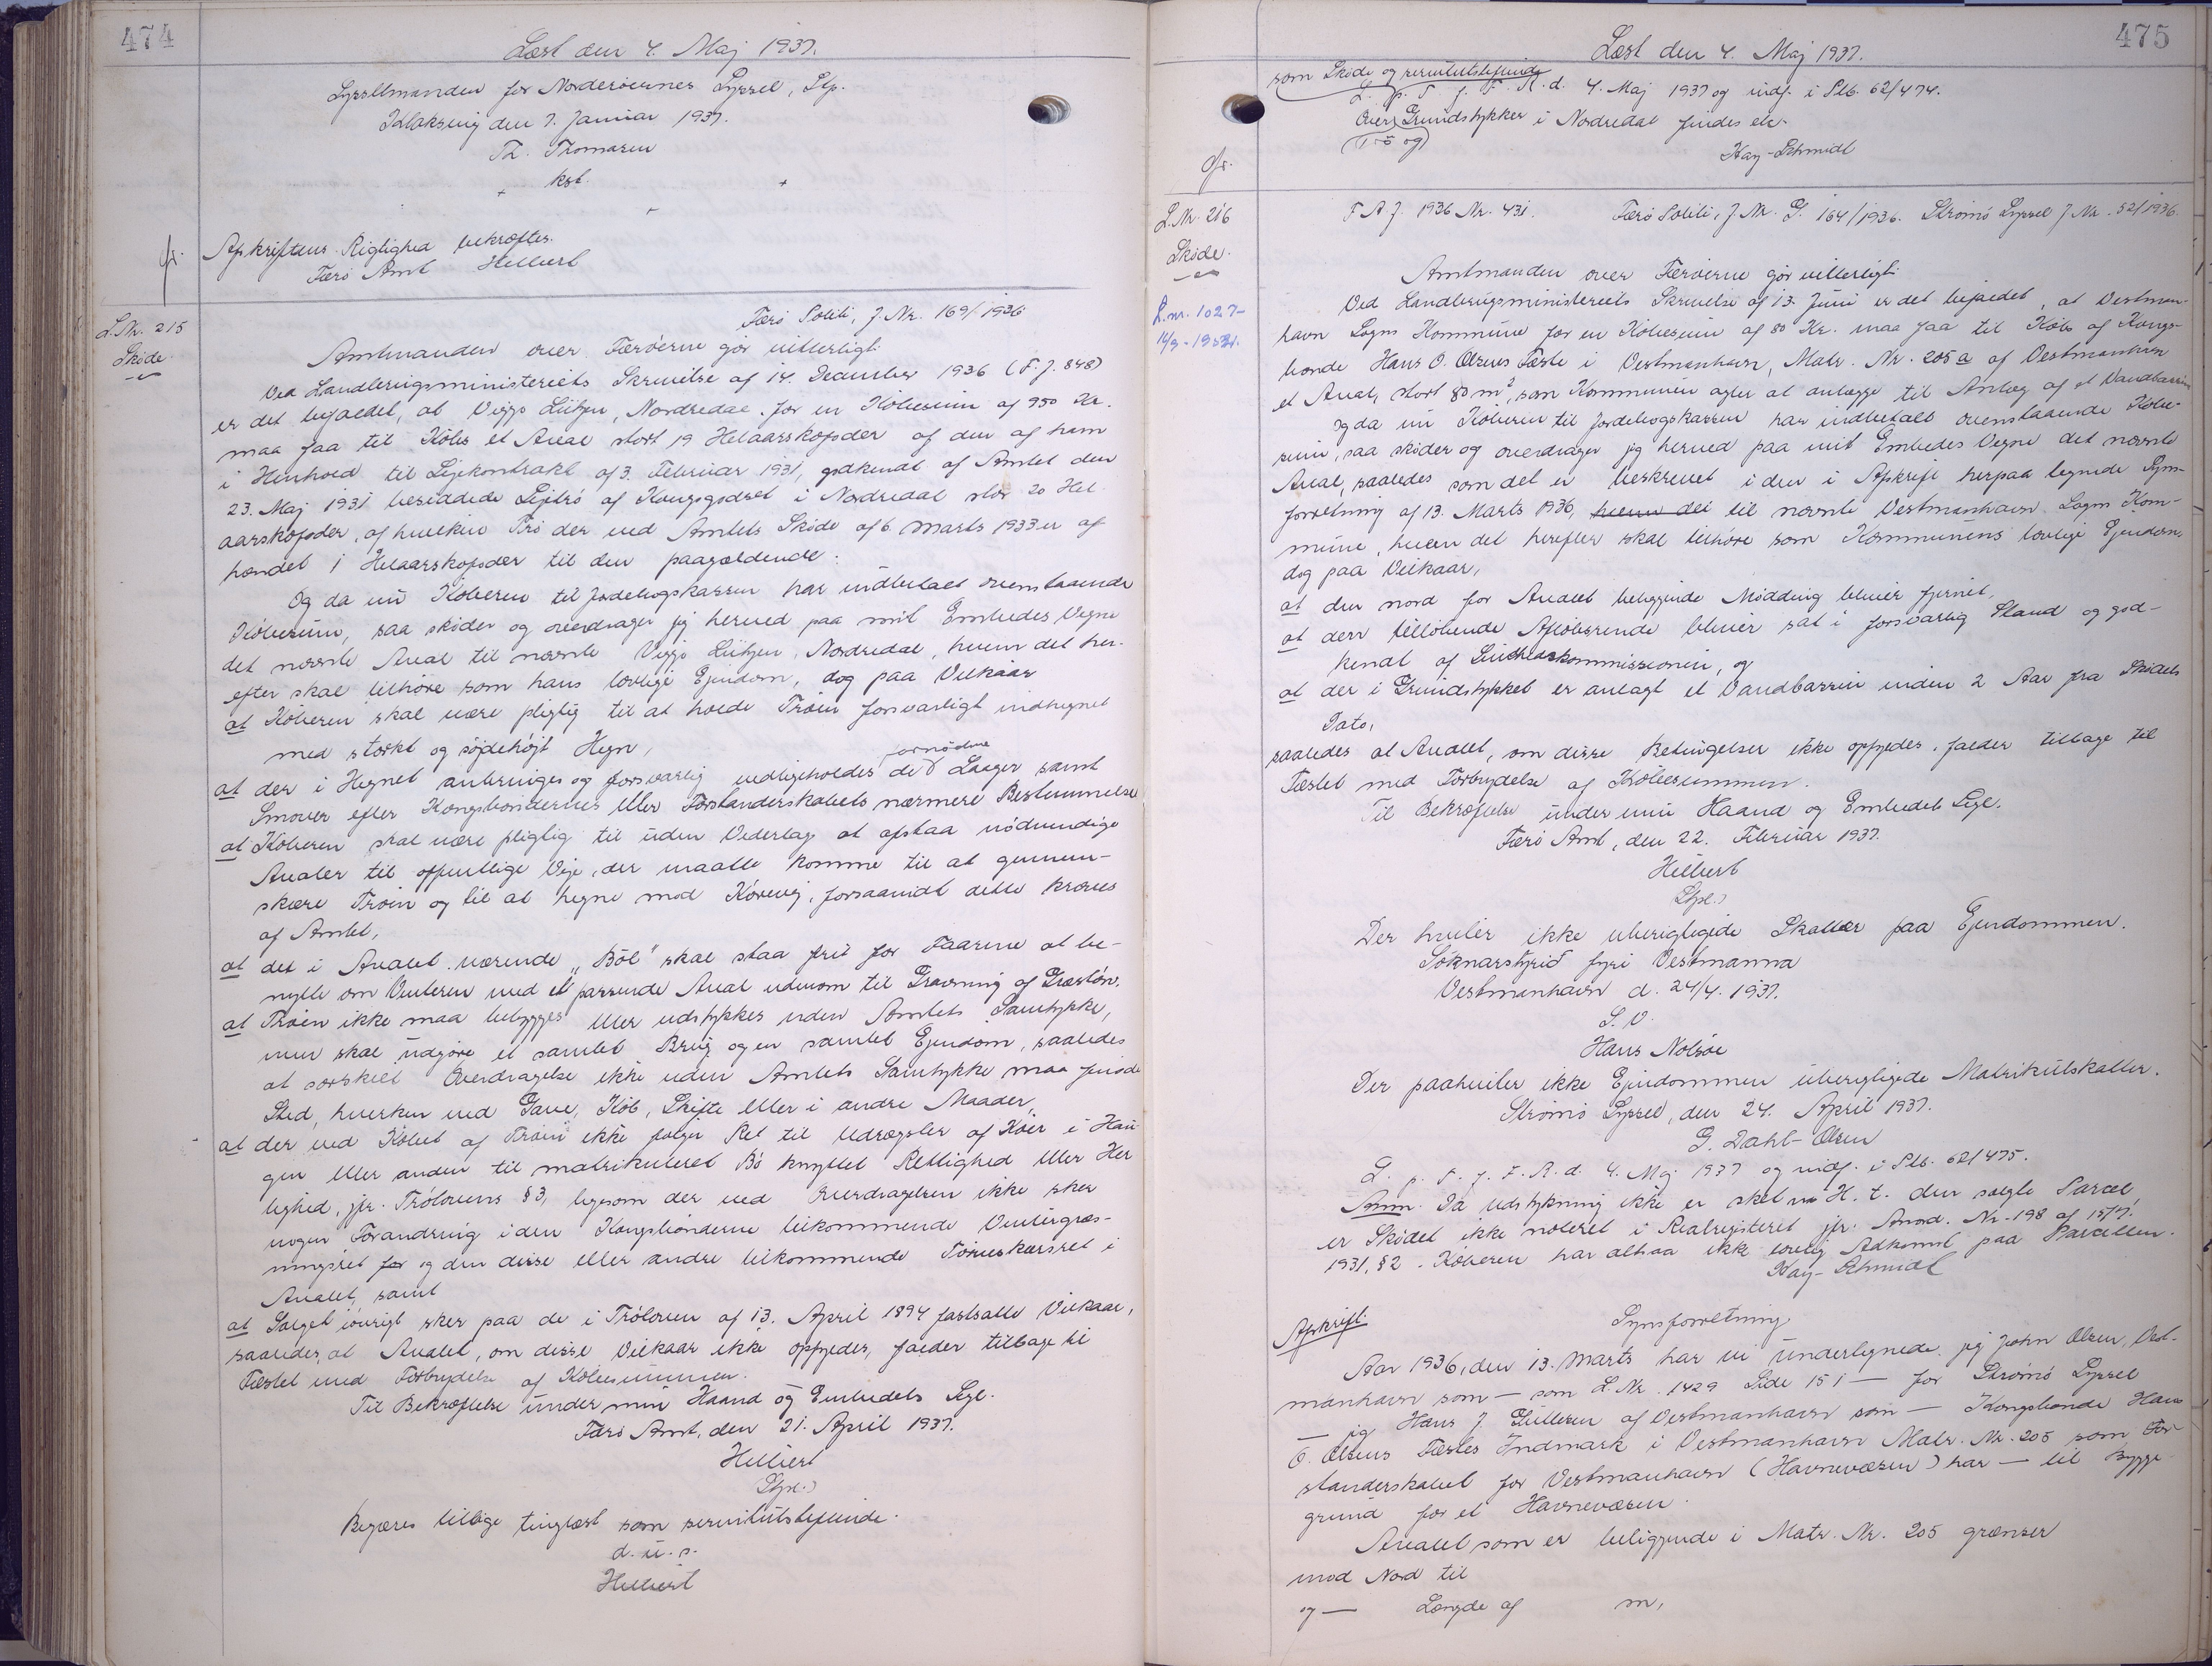 474
Læst den 4. Maj 1937.
Sysselmanden for Norderøernes Syssel, Stp.
Klaksvig den 7. Januar 1937.
Th. Thomasen
kst.
gr. Afskriftens Rigtighed bekræftes.
Færø Amt Hilbert
Færø Politi, J. Nr. 169/1936
L.Nr. 215
Skøde.
Amtmanden over Færøerne gør vitterligt:
Ved Landbrugsministeriets Skrivelse af 14. December 1936 (F. J. 848)
er det bejaedet, at Viggo Lützen, Nordredal, for en Købesum af 950 Kr.
maa faa til Købs et Areal stort 19 Helaarskofoder af den af ham
i Henhold til Lejekontrakt af 3. Februar 1931, godkendt af Amtet den
23. Maj 1931 besiddede Lejetrø af Kongsgodset i Nordredal stor 20 Hel-
aarskofoder, af hvilken Trø der ved Amtets Skøde af 6. Marts 1933 er af-
hændet 1 Helaarskofoder til den paagældende.
Og da nu Køberen til Jordebogskassen har indbetalt ovenstaaende
Købesum, saa skøder og overdrager jeg herved paa mit Embedes Vegne
det nævnte Areal til nævnte Viggo Lützen, Nordredal, hvem det her-
efter skal tilhøre som hans lovlige Ejendom, dog paa Vilkaar
at Køberen skal være pligtig til at holde Trøen forsvarligt indhegnet
med stærkt og søjdehøjt Hegn,
at der i Hegnet anbringes og forsvarlig vedligeholdes de fornødne Laager samt
Smover efter Kongsbøndernes eller Forstanderskabets nærmere Bestemmelse
at Køberen skal være pligtig til uden Vederlag at afstaa nødvendige
Arealer til offentlige Veje, der maatte komme til at gennem-
skære Trøen og til at hegne mod Kørevej, forsaavidt dette kræves
af Amtet,
at det i Arealet værende "Ból" skal staa frit for Faarene at be-
nytte om Vinteren med et passende Areal udenom til Gravning af Græstørv.
at Trøen ikke maa bebygges eller udstykkes uden Amtets Samtykke,
men skal udgøre et samlet Brug og en samlet Ejendom, saaledes
at særskilt Overdragelse ikke uden Amtets Samtykke maa finde
Sted, hverken ved Gave, Køb, Skifte eller i andre Maader,
at der ved Købet af Trøen ikke følger Ret til Udrægsler af Køer i Hau-
gen eller anden til matrikuleret Bø knyttet Rettighed eller Her-
lighed, jfr. Trøloven § 3, ligesom der ved Overdragelsen ikke sker
nogen Forandring i den Kongsbønderne tilkommende Vintergræs-
ningsret for og den disse eller andre tilkommende Tørveskæsret i
Arealet, samt
at Salget iøvrigt sker paa de i Trøloven af 13. April 1894 fastsatte Vilkaar,
saaledes, at Arealet, om disse Vilkaar ikke opfyldes, falder tilbage til
Fæstet med Fortbrydelse af Købesummen.
Til Bekræftelse under min Haand og Embedets Segl.
Færø Amt, den 21. April 1937.
Hilbert
(Stpl.)
Begæres tillige tinglæst som servitutstiftende.
d. u. s.
Hilbert
475
Læst den 4. Maj 1937.
som Skøde og servitutstiftende
L. p. T. f. F. R. d. 4. Maj 1937 og indf. i Ptb. 62/474.
Over Grundstykker i Nordredal findes ele-
(Trø og)
gr. Kay-Schmidt
L.Nr. 216
Skøde.
L.nr. 1027-
F. A. J. 1936 Nr. 431. Færø Politi, J. Nr. G. 164/1936. Strømø Syssel J Nr. 52/1936.
Amtmanden over Færøerne gør vitterligt:
Ved Landbrugsministeriets Skrivelse af 13. Juni er det bejaedet, at Vestman-
havn Sogns Kommune for en Købesum af 80 Kr. maa faa til Købs af Kongs-
bonde Hans O. Olsens Fæste i Vestmanhavn, Matr. Nr. 205a af Vestmanhavn
et Areal, stort 80 m², som Kommunen agter at anlægge til Anlæg af et Vandbassin
Og da nu Køberen til Jordebogskassen har indbetalt ovenstaaende Købe-
sum, saa skøder og overdrager jeg herved paa mit Embedes Vegne det nævnte
Areal, saaledes som det er beskrevet i den i Afskrift herpaa tegnede Syns-
forretning af 13. Marts 1936, hvem det til nævnte Vestmanhavn Sogns Kom-
mune, hvem det herefter skal tilhøre som Kommunens lovlige Ejendom,
dog paa Vilkaar,
at den nord for Arealet beliggende Mødding bliver fjernet,
at den tilløbende Afløbsrende bliver sat i forsvarlig Stand og god-
kendt af Sundhedskommissionen, og
at der i Grundstykket er anlagt et Vandbassin inden 2 Aar fra Skødets
Dato,
saaledes at Arealet, om disse Betingelser ikke opfyldes, falder tilbage til
Fæstet med Fortbrydelse af Købesummen.
Til Bekræftelse under min Haand og Embedets Segl.
Færø Amt, den 22. Februar 1937.
Hilbert
(Stpl.)
Der hviler ikke uberigtigede Skatter paa Ejendommen.
Sóknarstýrið fyri Vestmanna
Vestmanhavn d. 24/4. 1937.
S. V.
Hans Nolsøe
Der paahviler ikke Ejendommen uberigtigede Matrikulskatter.
Strømø Syssel, den 24. April 1937.
G. Dahl-Olsen
L. p. T. f. F. R. d. 4. Maj 1937 og indf. i Ptb. 62/475.
Anm. Da udstykning ikke er sket m H. t. den solgte Parcel,
er Skødet ikke noteret i Realregisteret jfr. Anord. Nr. 198 af 15/7.
1931, § 2. Køberen har altsaa ikke lovlig Adkomst paa Parcellen.
Kay-Schmidt
Afskrift. Synsforretning
Aar 1936, den 13. Marts har vi undertegnede, jeg John Olsen, Vest-
manhavn som — som L.Nr. 1429 Side 151 — for Strømø Syssel
— jeg Hans J. af Vestmanhavn som — Kongsbonde Hans
O. Olsens Fæstes Indmark i Vestmanhavn Matr. Nr. 205 som For-
standerskabet for Vestmanhavn (Havnevæsen) har — til Bygge-
grund for et Havnevæsen.
Arealet som er beliggende i Matr. Nr. 205 grænser
mod Nord til
og — Længde af m,